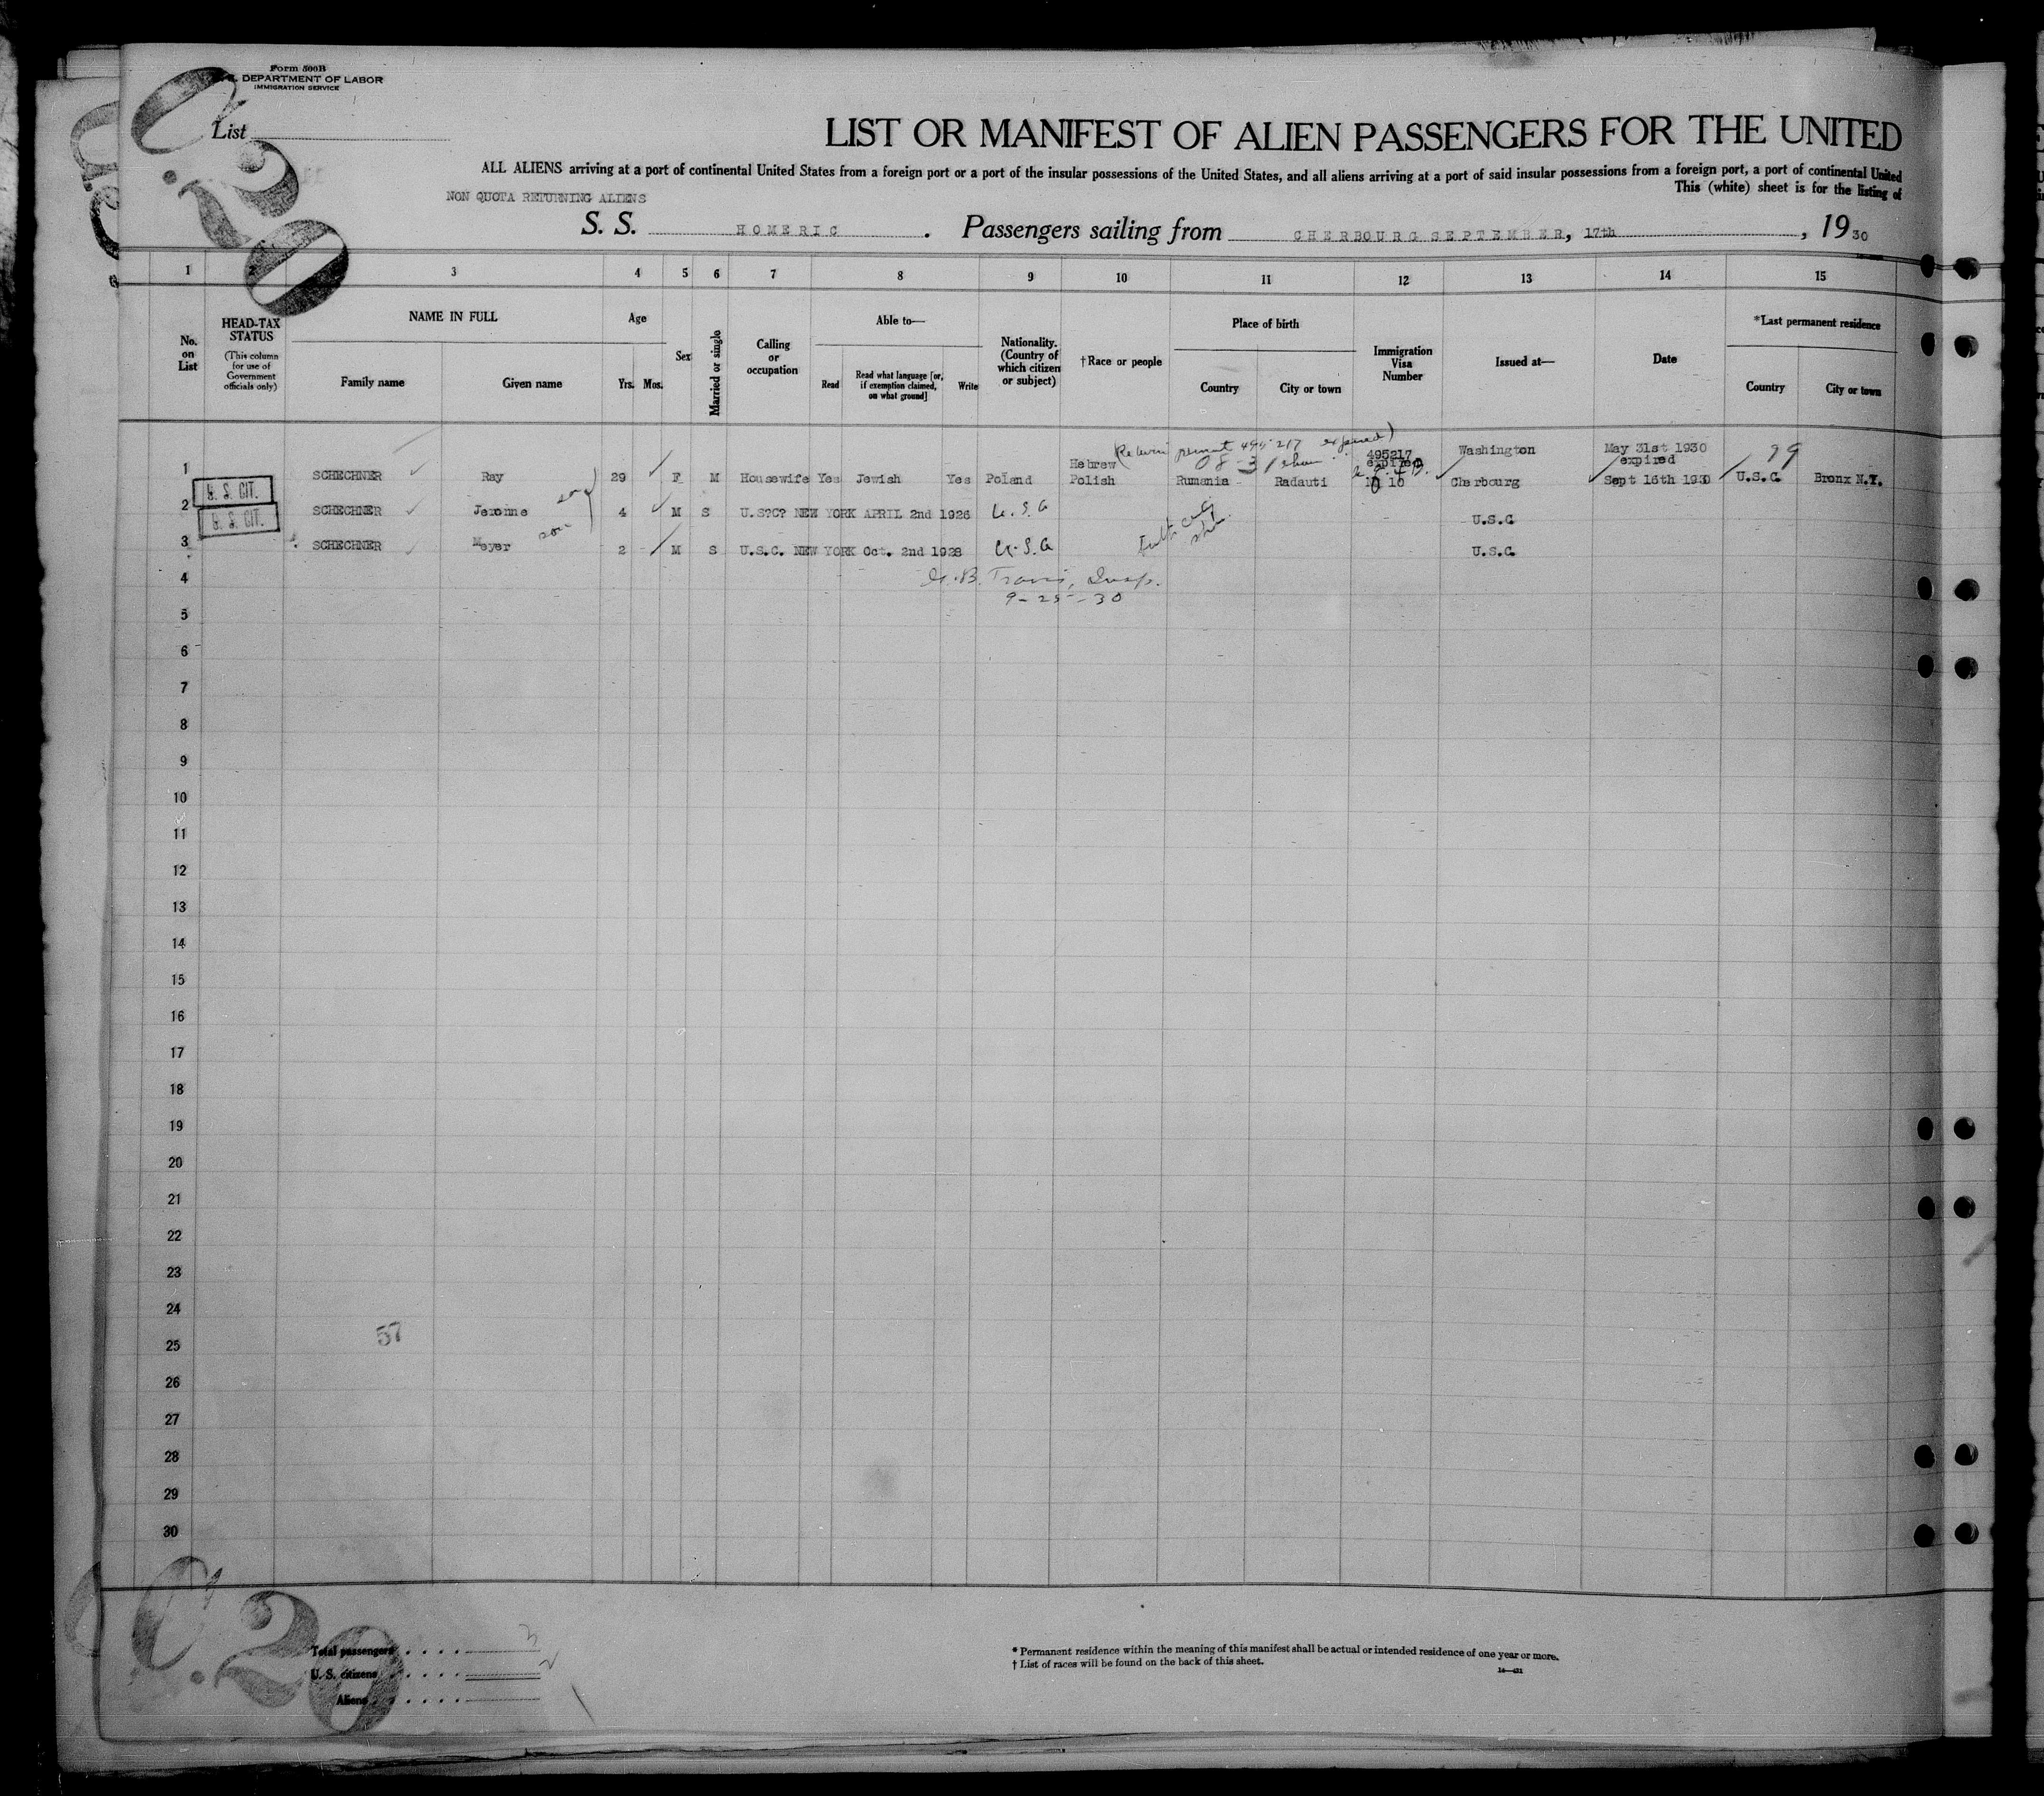 Form 500B
DEPARTMENT OF LABOR
IMMIGRATION SERVICE
List
LIST OR MANIFEST OF ALIEN PASSENGERS FOR THE UNITED
ALL ALIENS arriving at a port of continental United States from a foreign port or a port of the insular possessions of the United States, and all aliens arriving at a port of said insular possessions from a foreign port, a port of continental United
This (white) sheet is for the listing of
NON QUOTA RETURNING ALIENS
S. S. HOMERIC. Passengers sailing from CHERBOURG SEPTEMBER, 17th, 1930
1 3 4 5 6 7 8 9 10 11 12 13 14 15
No. on List
HEAD-TAX STATUS
(This column for use of Government officials only)
NAME IN FULL
Family name
Given name
Age
Yrs. Mos.
Sex
Married or single
Calling or occupation
Able to—
Read
Read what language [or, if exemption claimed, on what ground]
Write
Nationality. (Country of which citizen or subject)
†Race or people
Place of birth
Country
City or town
Immigration Visa Number
Issued at—
Date
*Last permanent residence
Country
City or town
(Return permit 495217 expired)
495217 expired Washington May 31st 1930 expired 99
1 SCHECHNER Ray 29 F M Housewife Yes Jewish Yes Poland Hebrew Polish Rumania Radauti 10 Cherbourg Sept 16th 1930 U.S.C. Bronx N.Y.
U. S. CIT.
2 SCHECHNER Jeronne son 4 M S U.S?C? NEW YORK APRIL 2nd 1926 U.S.A U.S.C
U. S. CIT.
3 SCHECHNER Meyer son 2 M S U.S.C. NEW YORK Oct. 2nd 1928 U.S.A U.S.C
4
Travis, Insp.
9-25-30
5
6
7
8
9
10
11
12
13
14
15
16
17
18
19
20
21
22
23
24
57
25
26
27
28
29
30
C.20
Total passengers 3
U. S. citizens 2
Aliens 1
* Permanent residence within the meaning of this manifest shall be actual or intended residence of one year or more.
† List of races will be found on the back of this sheet.